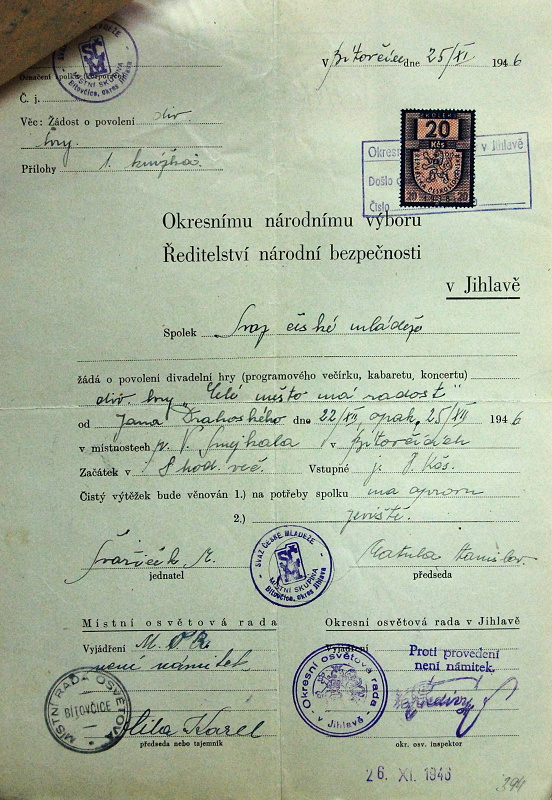 SVAZ ČESKÉ MLÁDEŽE
SČM
MÍSTNÍ SKUPINA
Bítovčice, okres Jihlava
v Bítovčice dne 25/XI 1946
Označení spolku (korporace)
Č. j.
Věc: Žádost o povolení div.
hry.
Přílohy 1. knížka.
KOLEK
20
Kčs
REPUBLIKA ČESKOSLOVENSKÁ
20 20
Okres v Jihlavě
Došlo
Číslo
Okresnímu národnímu výboru
Ředitelství národní bezpečnosti
v Jihlavě
Spolek Svaz české mládeže
žádá o povolení divadelní hry (programového večírku, kabaretu, koncertu)
div. hry „Celé město má radost"
od Jana Drahoského dne 22/XII, opak. 25/XII 1946
v místnostech p. V. Smejkala v Bítovčicích
Začátek v 8 hod. več. Vstupné Kčs.
Čistý výtěžek bude věnován 1.) na potřeby spolku na opravu
2.) jeviště.
jednatel
SVAZ ČESKÉ MLÁDEŽE
SČM
MÍSTNÍ SKUPINA
Bítovčice, okres Jihlava
Stanislav
předseda
Místní osvětová rada
Vyjádření M. O. R.
není námitek
MÍSTNÍ RADA OSVĚTOVÁ
BÍTOVČICE
Karel
předseda nebo tajemník
Okresní osvětová rada v Jihlavě
Vyjádření
Proti provedení
není námitek.
Okresní osvětová rada
v Jihlavě
okr. osv. inspektor
26. XI. 1946
394